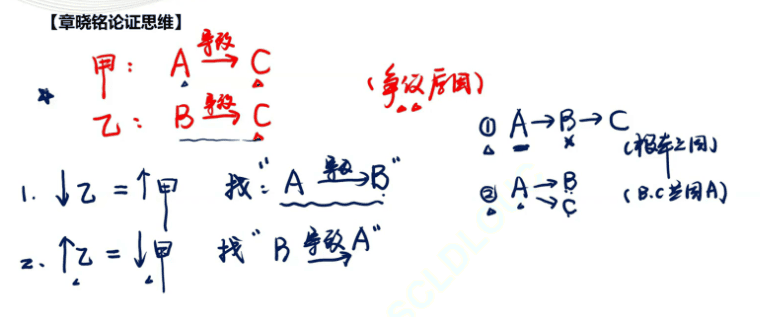 【章晓铭论证思维】
甲： A 导致→ C
乙： B 导致→ C
（争议原因）
1. ↓乙 = ↑甲 找：“A 导致→ B”
2. ↑乙 = ↓甲 找“B 导致→ A”
① A→B→C
（根本之因）
② A→B
→C
（B.C共因A）
SCLDLO